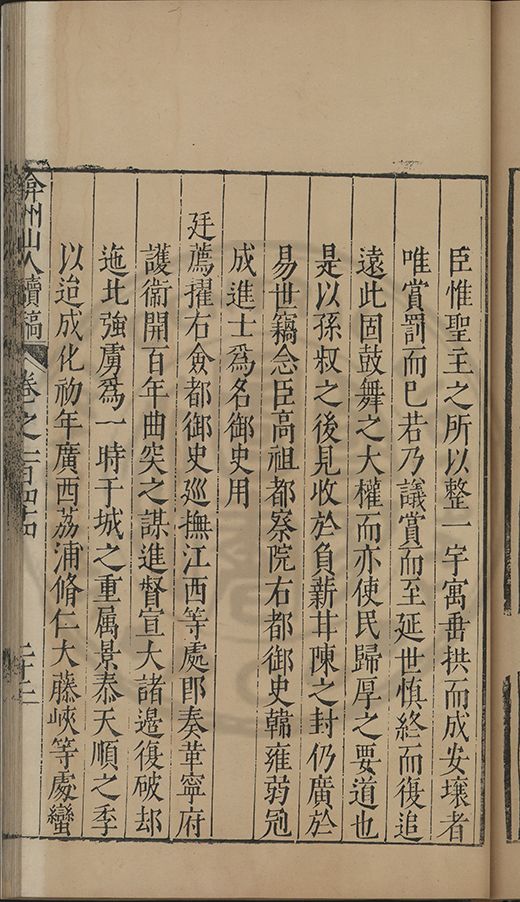 臣惟聖主之所以整一宇寓垂拱而成安壤者
唯賞罰而已若乃議賞而至延世慎終而復追
遠此固鼓舞之大權而亦使民歸厚之要道也
是以孫叔之後見收於負薪甘陳之封仍廣於
易世竊念臣高祖都察院右都御史韓雍弱冠
成進士爲名御史用
廷薦擢右僉都御史巡撫江西等處即奏革寧府
護衞開百年曲突之謀進督宣大諸邊復破却
迤北強虜爲一時干城之重属景泰天順之季
以迨成化初年廣西荔浦脩仁大藤峽等處蠻
弇州山人續稿 卷之一百四 二十三